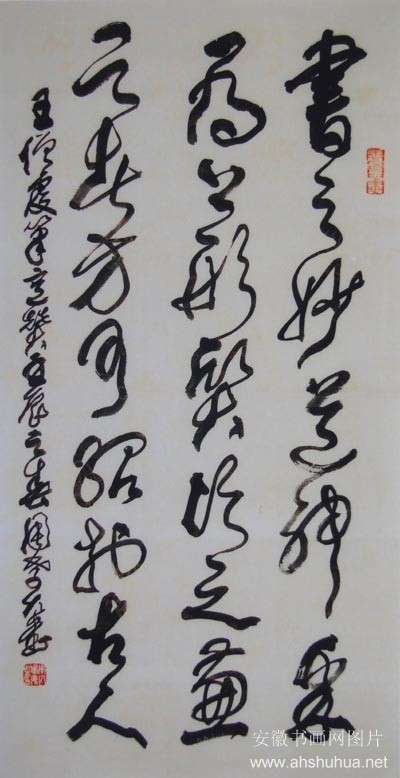 書之妙道神采
為上形質次之兼
之者方可紹於古人
王僧虔筆意贊壬辰之春周學
安徽书画网图片
www.ahshuhua.net